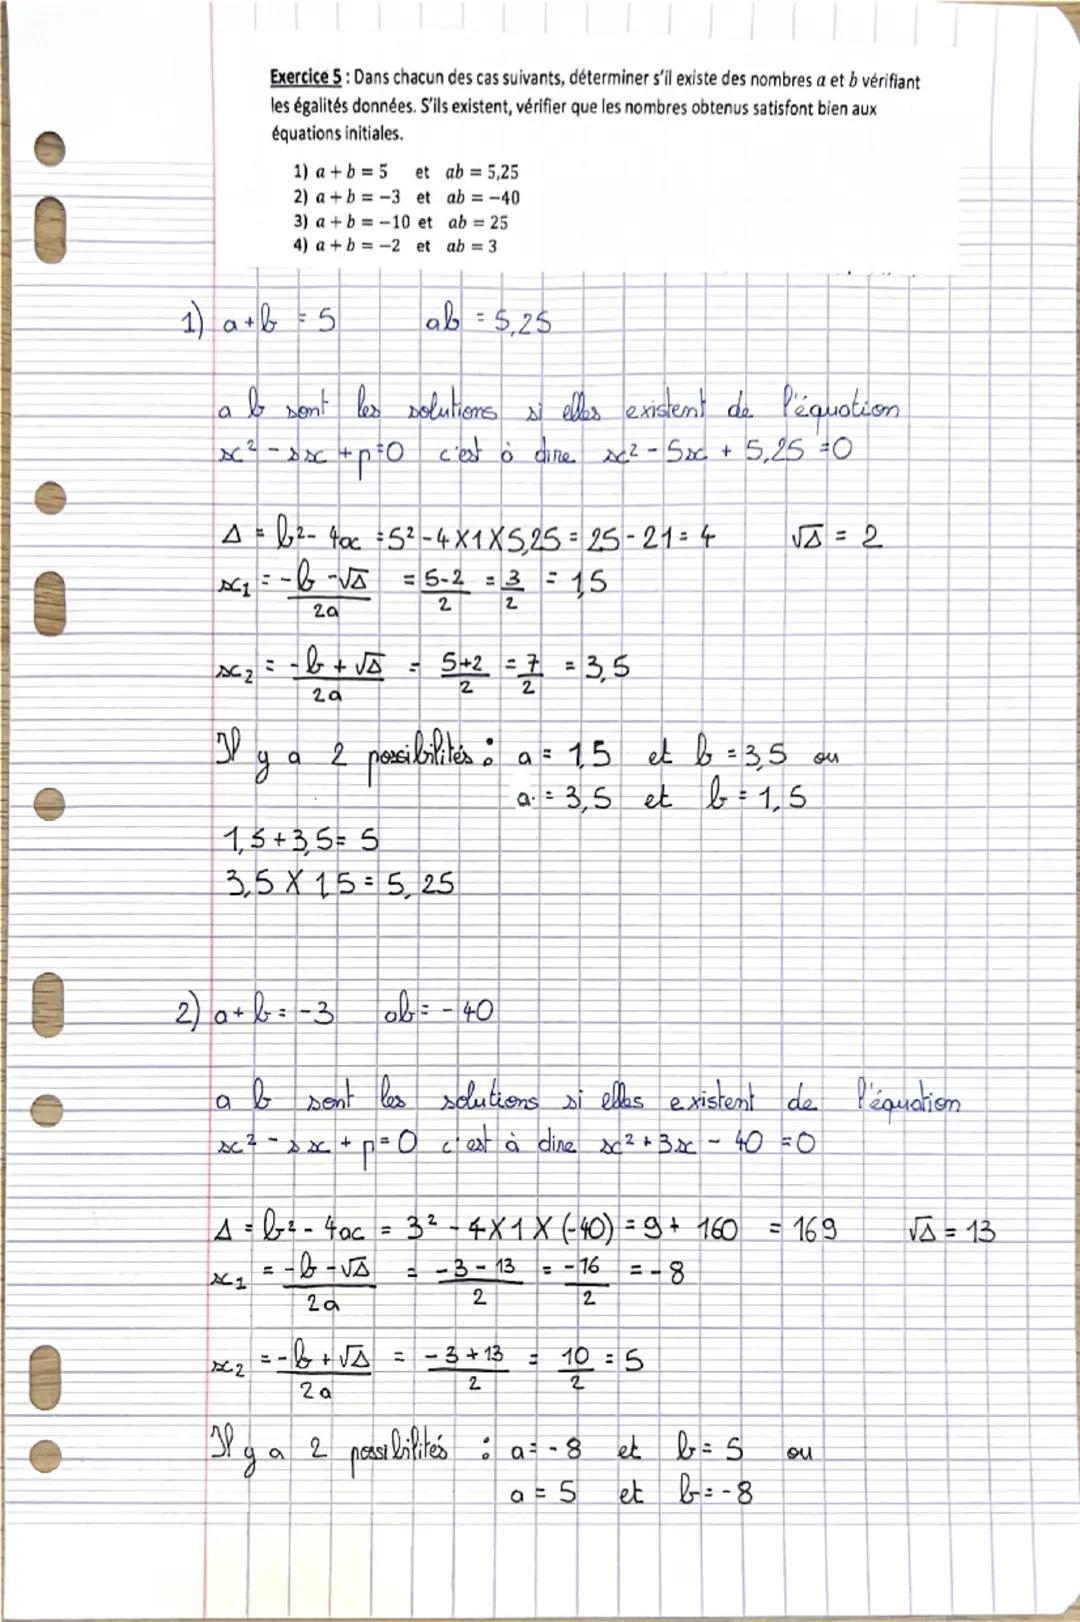 Exercice 5 : Dans chacun des cas suivants, déterminer s'il existe des nombres a et b vérifiant
les égalités données. S'ils existent, vérifier que les nombres obtenus satisfont bien aux
équations initiales.
1) a + b = 5 et ab = 5,25
2) a + b = −3 et ab = −40
3) a + b = −10 et ab = 25
4) a + b = −2 et ab = 3
1) a+b = 5 ab = 5,25
a b sont les solutions si elles existent de l'équation
x² - sx + p = 0 c'est à dire x² - 5x + 5,25 = 0
Δ = b² - 4ac = 5² - 4 X 1 X 5,25 = 25 - 21 = 4 √Δ = 2
x₁ = (-b - √Δ)/2a = (5-2)/2 = 3/2 = 1,5
x₂ = (-b + √Δ)/2a = (5+2)/2 = 7/2 = 3,5
Il y a 2 possibilités : a = 1,5 et b = 3,5 ou
a = 3,5 et b = 1,5
1,5 + 3,5 = 5
3,5 X 1,5 = 5,25
2) a + b = -3 ab = -40
a b sont les solutions si elles existent de l'équation
x² - sx + p = 0 c'est à dire x² + 3x - 40 = 0
Δ = b² - 4ac = 3² - 4 X 1 X (-40) = 9 + 160 = 169 √Δ = 13
x₁ = (-b - √Δ)/2a = (-3 - 13)/2 = -16/2 = -8
x₂ = (-b + √Δ)/2a = (-3 + 13)/2 = 10/2 = 5
Il y a 2 possibilités : a = -8 et b = 5 ou
a = 5 et b = -8